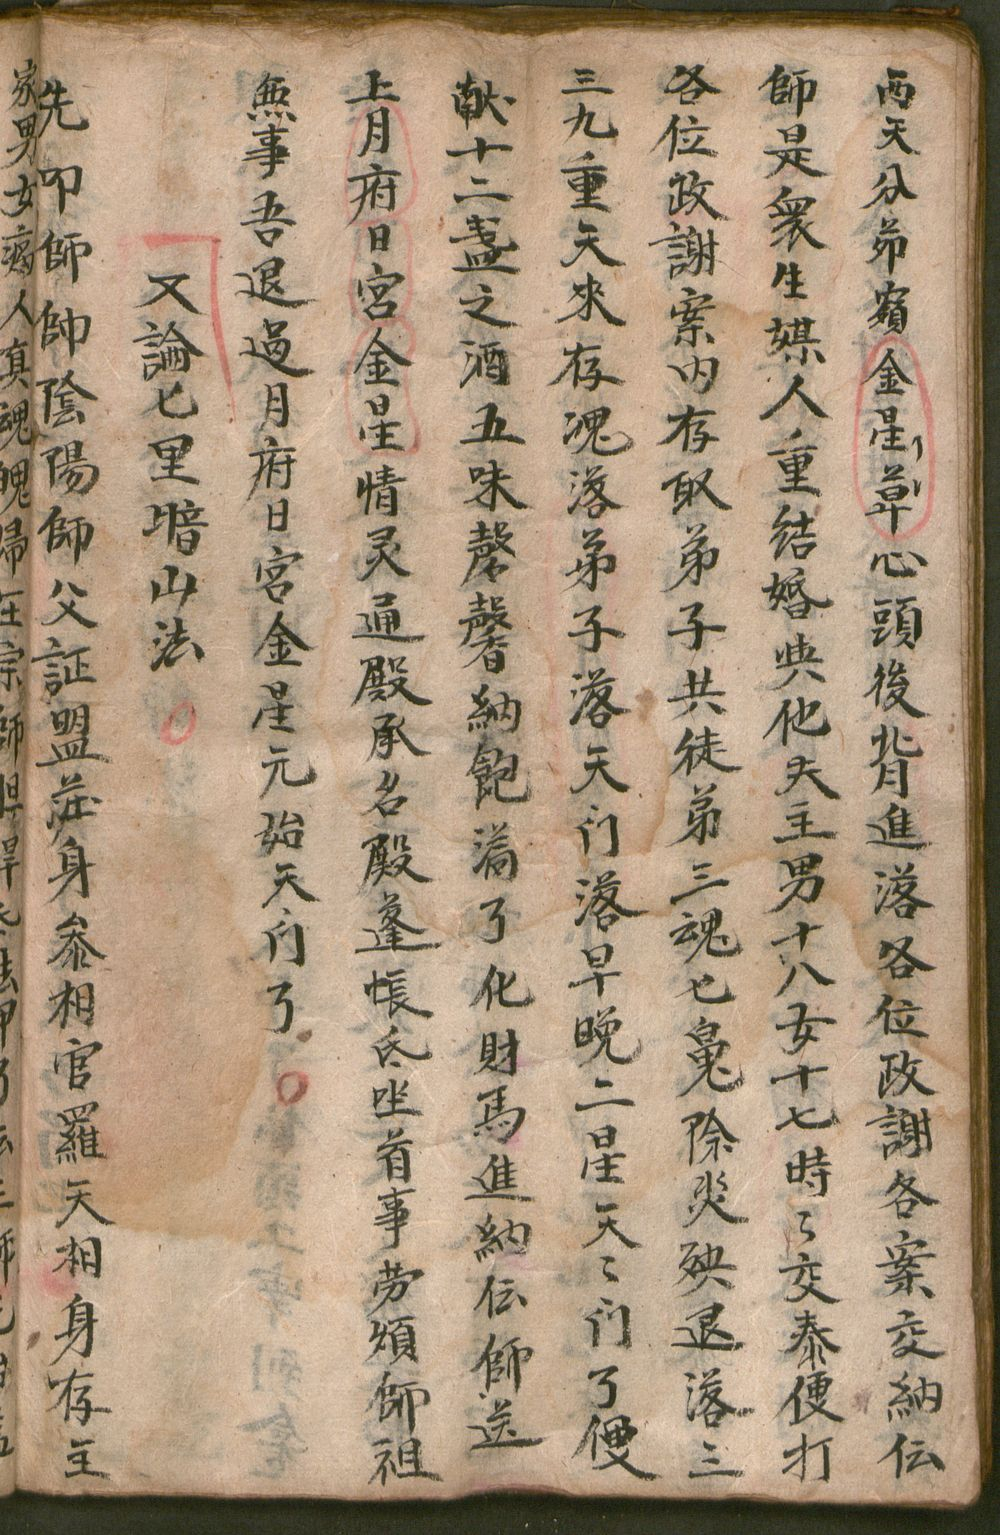 西天分茆嶺金星草心頭後背進落各位政謝各案交納伝
師是衆生媒人重結婚與他夫主男十八女十七時〻交泰便打
各位政謝案内存取弟子共徒弟三魂七鬼除災殃退落三
三九重天來存魂落弟子落天门落早晚二星天〻门了便
献十二盞之酒五味馨馨納飽滿了化財馬進納伝師送
上月府日宮金星情灵通殿承名殿蓬帳氏坐首事劳煩師祖
無事吾退過月府日宮金星元始天门了
又論七里暗山法
先叩師師陰陽師父証盟莊身叅相官羅天相身存主
家男女病人真魂魄歸在宗師